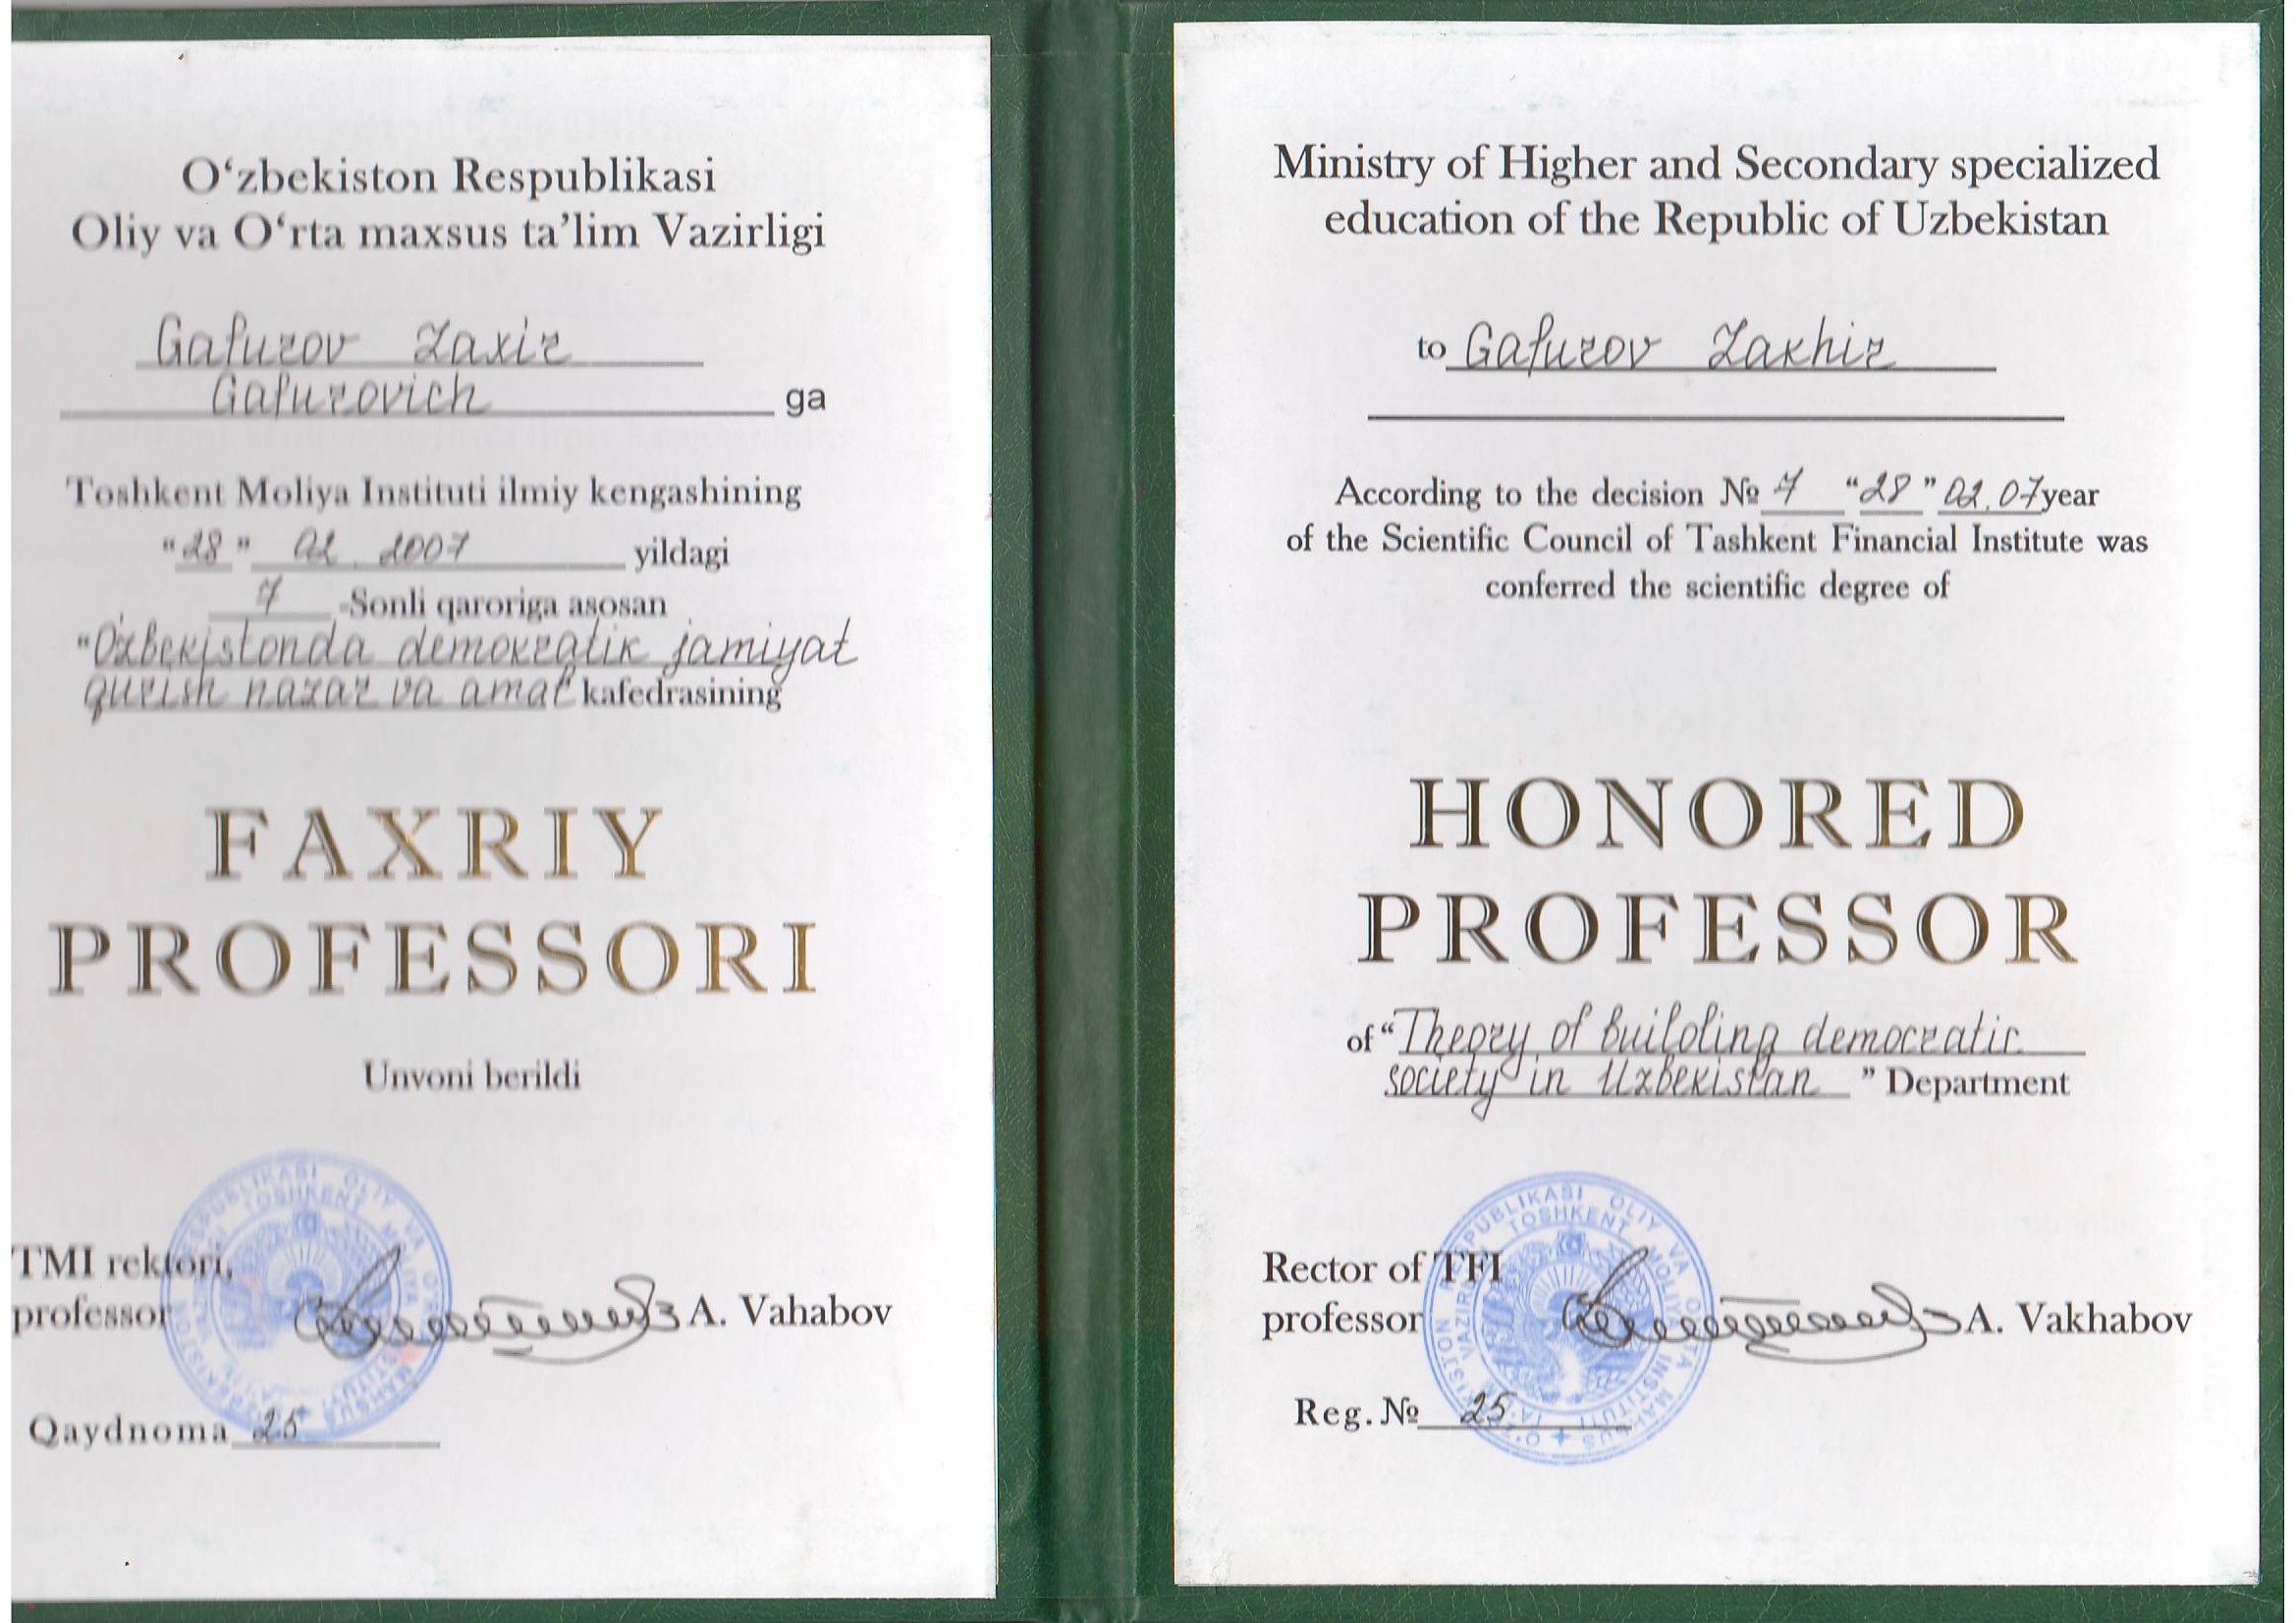 O‘zbekiston Respublikasi
Oliy va O‘rta maxsus ta’lim Vazirligi
Gafurov Zaxir
Gafurovich ga
Toshkent Moliya Instituti ilmiy kengashining
“28” 02 2007 yildagi
7 -Sonli qaroriga asosan
“O'zbekistonda demokratik jamiyat
qurish nazar va amal kafedrasining
FAXRIY
PROFESSORI
Unvoni berildi
TMI rektori,
professor A. Vahabov
Qaydnoma 25
Ministry of Higher and Secondary specialized
education of the Republic of Uzbekistan
to Gafurov Zakhir
According to the decision № 7 “28” 02.07 year
of the Scientific Council of Tashkent Financial Institute was
conferred the scientific degree of
HONORED
PROFESSOR
of “Theory of building democratic
society in Uzbekistan ” Department
Rector of TFI
professor A. Vakhabov
Reg. № 25